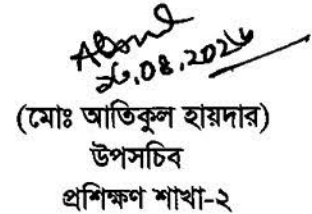 26.08.2024
(মোঃ আতিকুল হায়দার)
উপসচিব
প্রশিক্ষণ শাখা-২